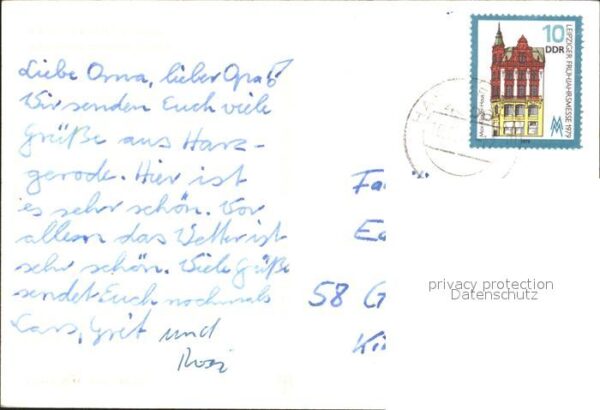 Liebe Oma, lieber Opa!
Wir senden Euch viele
Grüße aus Harz-
gerode. Hier ist
es sehr schön. Vor
allem das Wetter ist
sehr schön. Viele Grüße
sendet Euch nochmals
Lars, Grit und
Rosi
10
DDR
LEIPZIGER FRÜHJAHRSMESSE 1979
58 G
privacy protection
Datenschutz